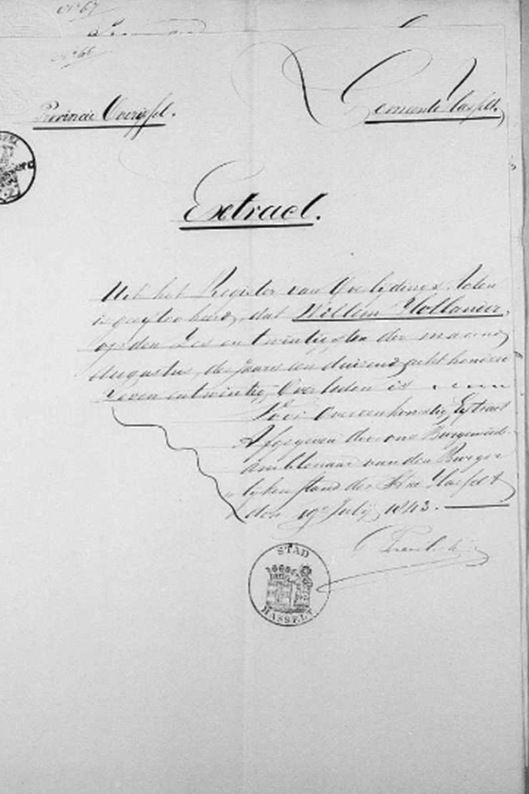 No 67
No 66
Provincie Overijssel.
Gemeente Hasselt.
Extract.
Uit het Register van Overlijdings Acten
is geëxtraheerd, dat Willem Hollander,
op den Zes en twintigsten der maand
Augustus, des jaars een duizend acht honderd
Zeven en twintig, Overleden is
Voor Overeenkomstig Extract
Afgegeven door ons Burgemeester
Ambtenaar van den Burger
lijken stand der Stad Hasselt
den 19e Julij 1843.
STAD
HASSELT